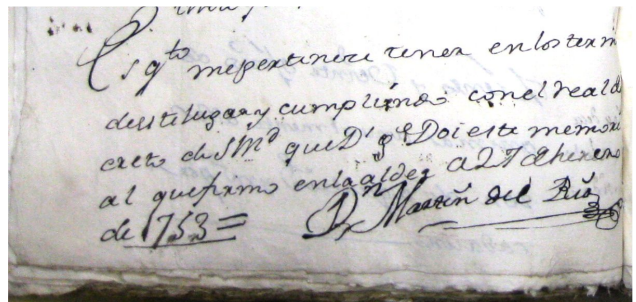 Es qto mepertinece tener enlos term
deestelugar y cumpliendo conel real de
creto de S Md que Ds ge Doi este memori
al que firmo enlaaldea a 27 dhenero
de 1753=
Dn Martin del Rio